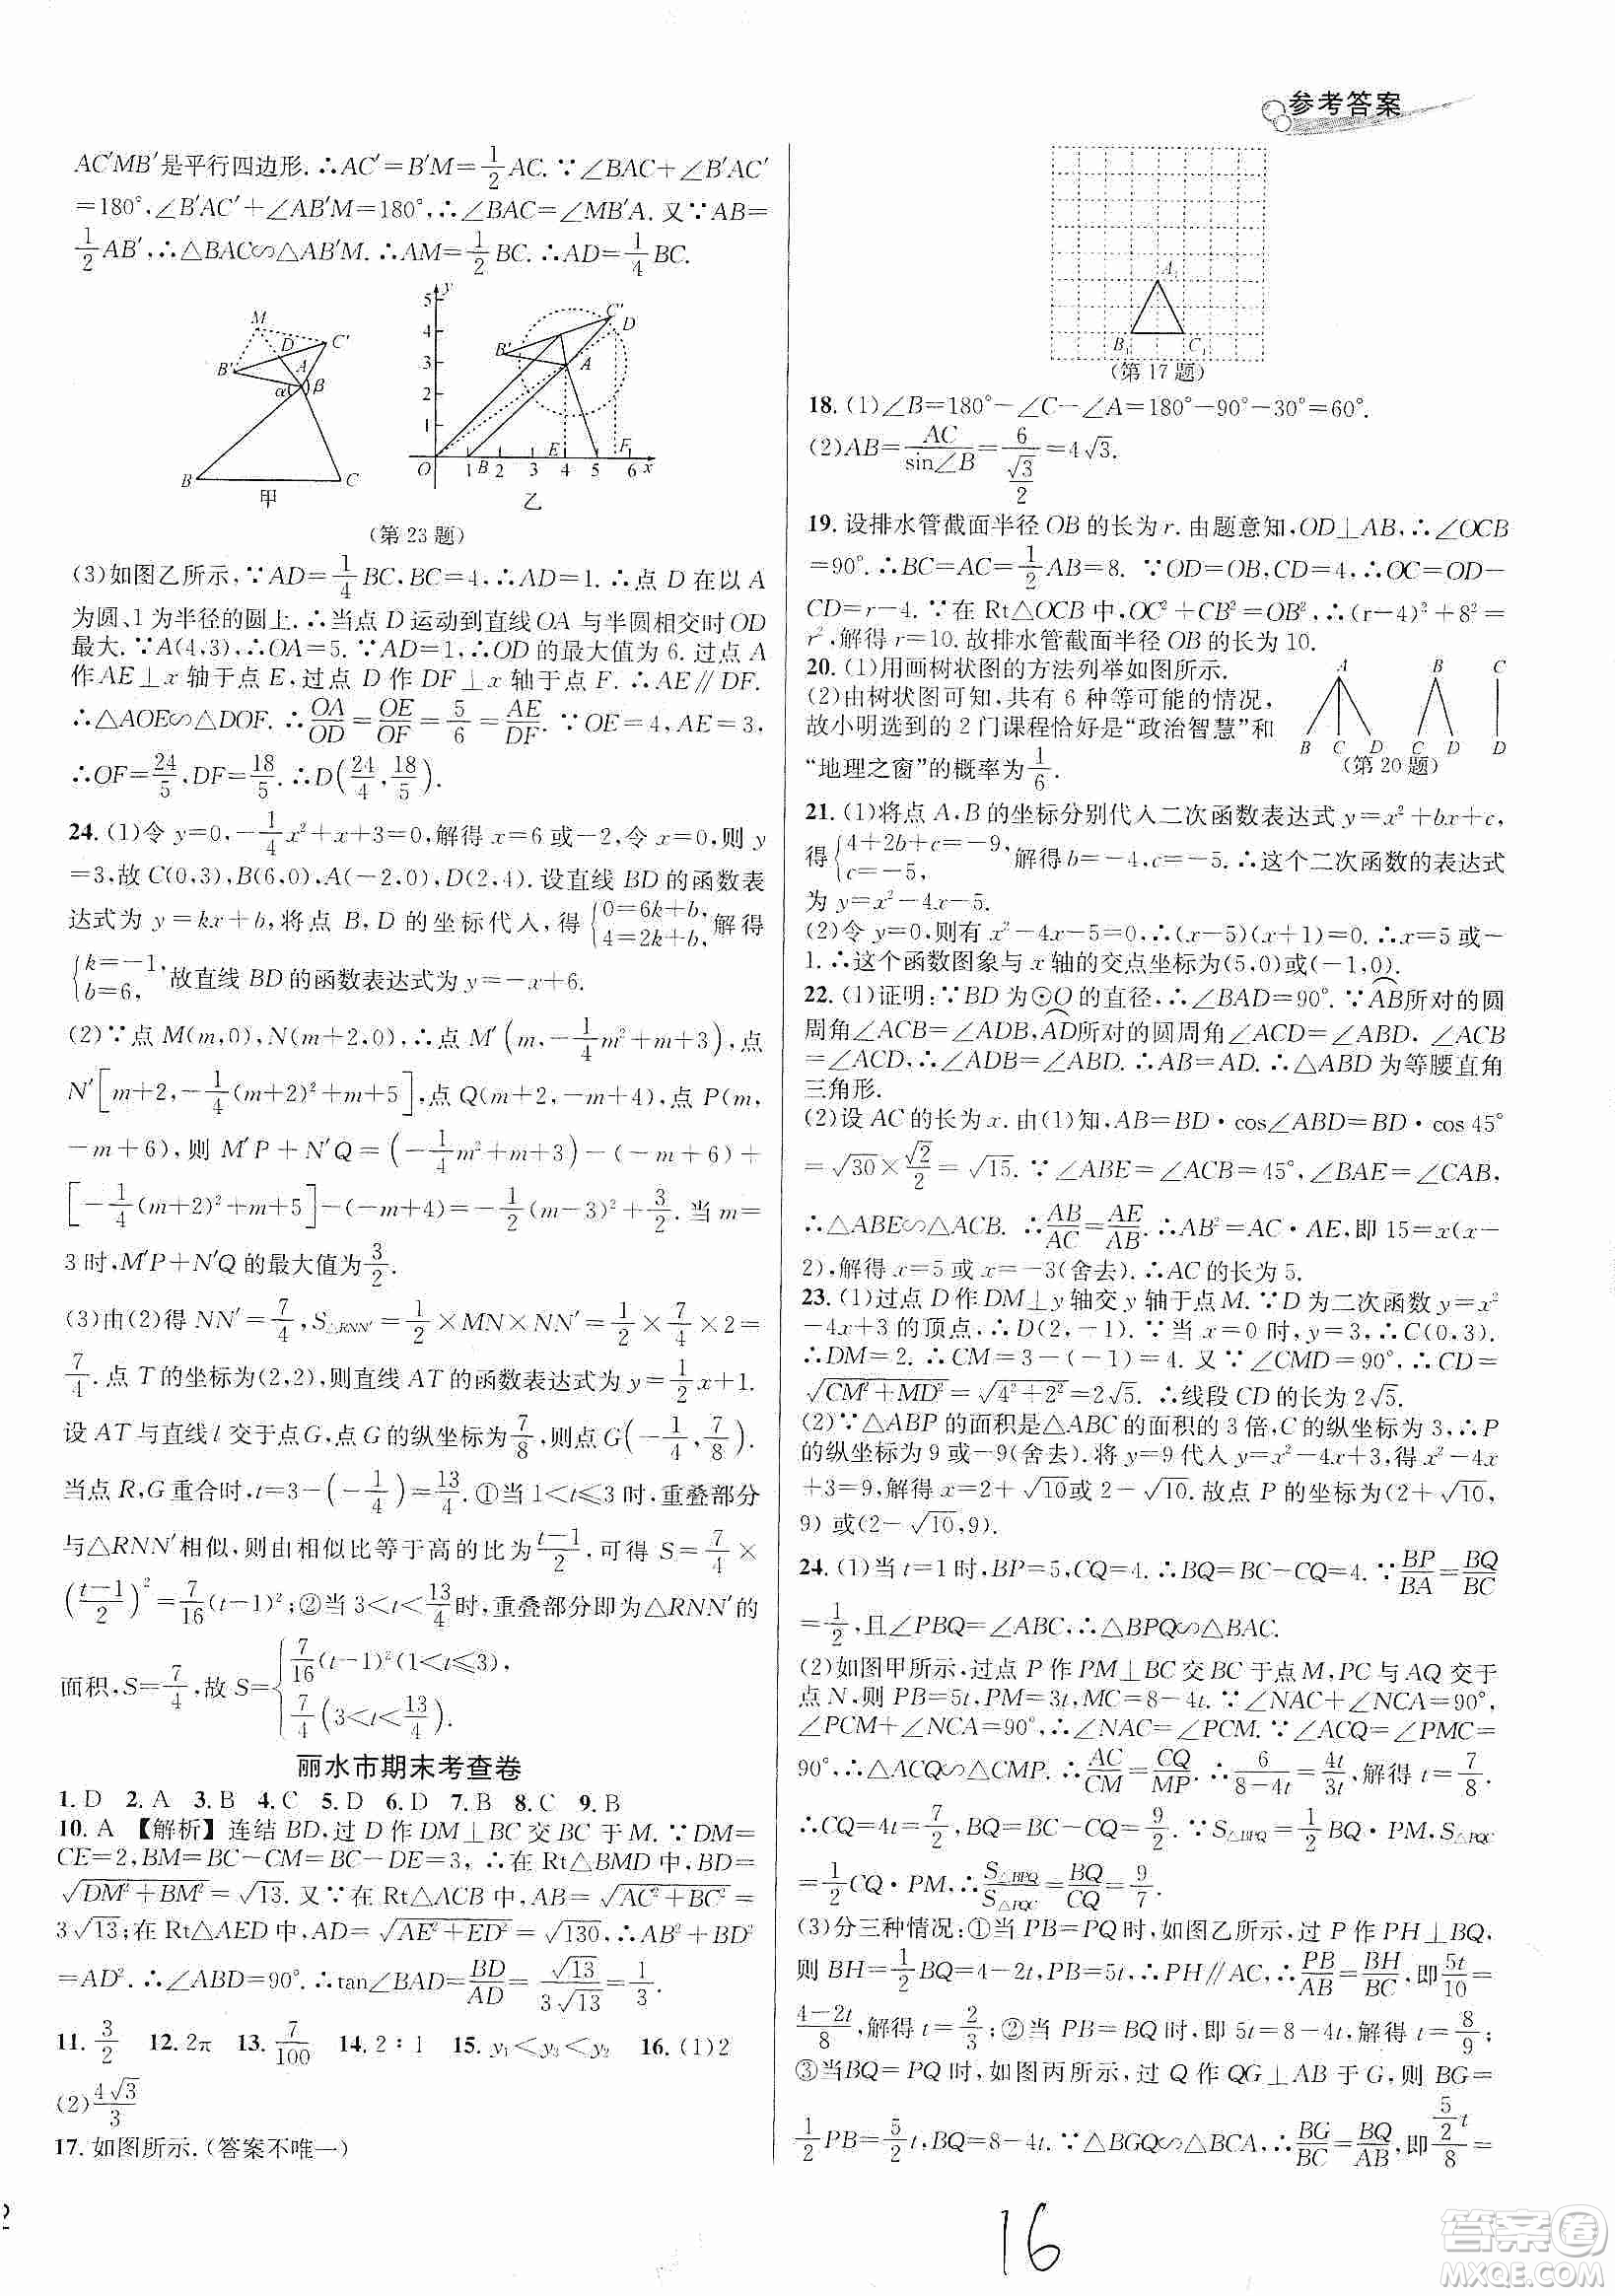 参考答案
AC′MB′是平行四边形.∴AC′=B′M=1/2AC.∵∠BAC+∠B′AC′
=180°,∠B′AC′+∠AB′M=180°,∴∠BAC=∠MB′A.又∵AB=
1/2AB′,∴△BAC∽△AB′M.∴AM=1/2BC.∴AD=1/4BC.
M D C′ B′ A α β B C 甲
y 5 4 3 2 1 O 1 B 2 3 E 4 5 F 6 x C″ D B′ A 乙
(第23题)
(3)如图乙所示,∵AD=1/4BC,BC=4,∴AD=1.∴点 D 在以 A
为圆、1 为半径的圆上.∴当点 D 运动到直线OA 与半圆相交时OD
最大.∵A(4,3),∴OA=5.∵AD=1,∴OD 的最大值为 6.过点 A
作 AE⊥x 轴于点 E,过点 D 作 DF⊥x 轴于点 F.∴AE∥DF.
∴△AOE∽△DOF.∴OA/OD=OE/OF=5/6=AE/DF.∵OE=4,AE=3,
∴OF=24/5,DF=18/5.∴D(24/4,18/5).
24.(1)令 y=0,-1/4x²+x+3=0,解得 x=6 或-2,令 x=0,则 y
=3,故 C(0,3),B(6,0),A(-2,0),D(2,4).设直线 BD 的函数表
达式为 y=kx+b,将点 B,D 的坐标代入,得{0=6k+b,4=2k+b,解得
{k=-1,b=6,故直线 BD 的函数表达式为 y=-x+6.
(2)∵点 M(m,0),N(m+2,0),∴点 M′(m,-1/4m²+m+3),点
N′[m+2,-1/4(m+2)²+m+5],点 Q(m+2,-m+4),点 P(m,
-m+6),则 M′P+N′Q=(-1/4m²+m+3)-(-m+6)+
[-1/4(m+2)²+m+5]-(-m+4)=-1/2(m-3)²+3/2.当 m=
3 时,M′P+N′Q 的最大值为3/2.
(3)由(2)得 NN′=7/4,S△RNN′=1/2×MN×NN′=1/2×7/4×2=
7/4.点 T 的坐标为(2,2),则直线 AT 的函数表达式为 y=1/2x+1.
设 AT 与直线 l 交于点G,点 G 的纵坐标为7/8,则点G(-1/4,7/8).
当点 R,G 重合时,t=3-(-1/4)=13/4.①当 1<t≤3 时,重叠部分
与△RNN′相似,则由相似比等于高的比为(t-1)/2,可得 S=7/4×
((t-1)/2)²=7/16(t-1)²;②当 3<t<13/4时,重叠部分即为△RNN′的
面积,S=7/4,故 S={7/16(t-1)²(1<t≤3),7/4(3<t<13/4).
丽水市期末考查卷
1.D 2.A 3.B 4.C 5.D 6.D 7.B 8.C 9.B
10.A 【解析】连结 BD,过 D 作 DM⊥BC 交 BC 于 M.∵DM=
CE=2,BM=BC-CM=BC-DE=3,∴在 Rt△BMD 中,BD=
√(DM²+BM²)=√13.又∵在 Rt△ACB 中,AB=√(AC²+BC²)=
3√13;在 Rt△AED 中,AD=√(AE²+ED²)=√130,∴AB²+BD²
=AD².∴∠ABD=90°.∴tan∠BAD=BD/AD=√13/3√13=1/3.
11.3/2 12.2π 13.7/100 14.2∶1 15.y₁<y₃<y₂ 16.(1)2
(2)4√3/3
17.如图所示.(答案不唯一)
A₁ B₁ C₁
(第17题)
18.(1)∠B=180°-∠C-∠A=180°-90°-30°=60°.
(2)AB=AC/sin∠B=6/(√3/2)=4√3.
19.设排水管截面半径 OB 的长为 r.由题意知,OD⊥AB,∴∠OCB
=90°.∴BC=AC=1/2AB=8.∵OD=OB,CD=4,∴OC=OD-
CD=r-4.∵在 Rt△OCB 中,OC²+CB²=OB²,∴(r-4)²+8²=
r²,解得 r=10.故排水管截面半径 OB 的长为 10.
20.(1)用画树状图的方法列举如图所示.
(2)由树状图可知,共有 6 种等可能的情况,
故小明选到的 2 门课程恰好是“政治智慧”和
“地理之窗”的概率为1/6.
A B C
B C D C D D
(第20题)
21.(1)将点 A、B 的坐标分别代入二次函数表达式 y=x²+bx+c,
得{4+2b+c=-9,c=-5,解得b=-4,c=-5.∴这个二次函数的表达式
为 y=x²-4x-5.
(2)令 y=0,则有 x²-4x-5=0,∴(x-5)(x+1)=0.∴x=5 或-
1.∴这个函数图象与 x 轴的交点坐标为(5,0)或(-1,0).
22.(1)证明:∵BD 为⊙O 的直径,∴∠BAD=90°.∵AB所对的圆
周角∠ACB=∠ADB,AD所对的圆周角∠ACD=∠ABD.∠ACB
=∠ACD,∴∠ADB=∠ABD.∴AB=AD.∴△ABD 为等腰直角
三角形.
(2)设 AC 的长为 x.由(1)知,AB=BD·cos∠ABD=BD·cos 45°
=√30×√2/2=√15.∵∠ABE=∠ACB=45°,∠BAE=∠CAB,
∴△ABE∽△ACB.∴AB/AC=AE/AB.∴AB²=AC·AE,即 15=x(x-
2),解得 x=5 或 x=-3(舍去).∴AC 的长为 5.
23.(1)过点 D 作 DM⊥y 轴交 y 轴于点 M.∵D 为二次函数 y=x²
-4x+3 的顶点,∴D(2,-1).∵当 x=0 时,y=3,∴C(0,3).
∴DM=2.∴CM=3-(-1)=4.又∵∠CMD=90°,∴CD=
√(CM²+MD²)=√(4²+2²)=2√5.∴线段 CD 的长为 2√5.
(2)∵△ABP 的面积是△ABC 的面积的 3 倍,C 的纵坐标为 3,∴P
的纵坐标为 9 或-9(舍去).将 y=9 代入 y=x²-4x+3,得 x²-4x
+3=9,解得 x=2+√10或 2-√10.故点 P 的坐标为(2+√10,
9) 或(2-√10,9).
24.(1)当 t=1 时,BP=5,CQ=4.∴BQ=BC-CQ=4.∵BP/BA=BQ/BC
=1/2,且∠PBQ=∠ABC,∴△BPQ∽△BAC.
(2)如图甲所示,过点 P 作 PM⊥BC 交 BC 于点 M,PC 与 AQ 交于
点 N,则 PB=5t,PM=3t,MC=8-4t.∵∠NAC+∠NCA=90°,
∠PCM+∠NCA=90°,∴∠NAC=∠PCM.∵∠ACQ=∠PMC=
90°,∴△ACQ∽△CMP.∴AC/CM=CQ/MP.∴6/(8-4t)=4t/3t,解得 t=7/8.
∴CQ=4t=7/2,BQ=BC-CQ=9/2.∵S△BPQ=1/2BQ·PM,S△PQC
=1/2CQ·PM,∴S△BPQ/S△PQC=BQ/CQ=9/7.
(3)分三种情况:①当 PB=PQ 时,如图乙所示,过 P 作 PH⊥BQ,
则 BH=1/2BQ=4-2t,PB=5t,∴PH∥AC,∴PB/AB=BH/BC,即5t/10=
(4-2t)/8,解得 t=2/3;②当 PB=BQ 时,即 5t=8-4t,解得 t=8/9;
③当BQ=PQ 时,如图丙所示,过 Q 作 QG⊥AB 于 G,则 BG=
1/2PB=5/2t,BQ=8-4t.∵△BGQ∽△BCA,∴BG/BC=BQ/AB,即(5/2t)/8=
16
答案卷
MXQE.COM
2